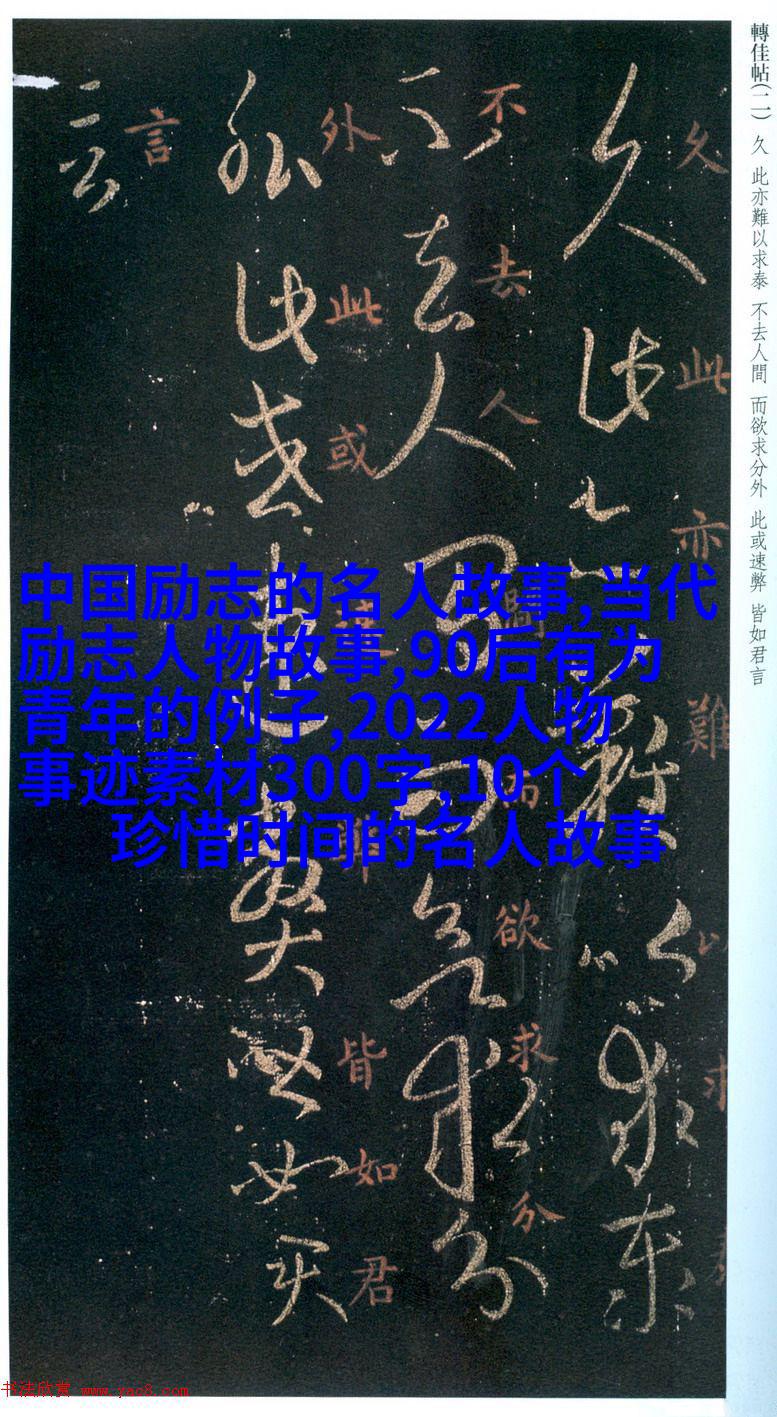 轉佳帖(二) 久 此亦難以求泰 不去人間 而欲求分外 此或速弊 皆如君言
久此亦難以求泰
不去人間而欲求分
外此或速弊皆如君
言
中国励志的名人故事,当代
励志人物故事,90后有为
青年的例子,2022人物
事迹素材300字,10个
珍惜时间的名人故事
书法欣赏 www.yac8.com